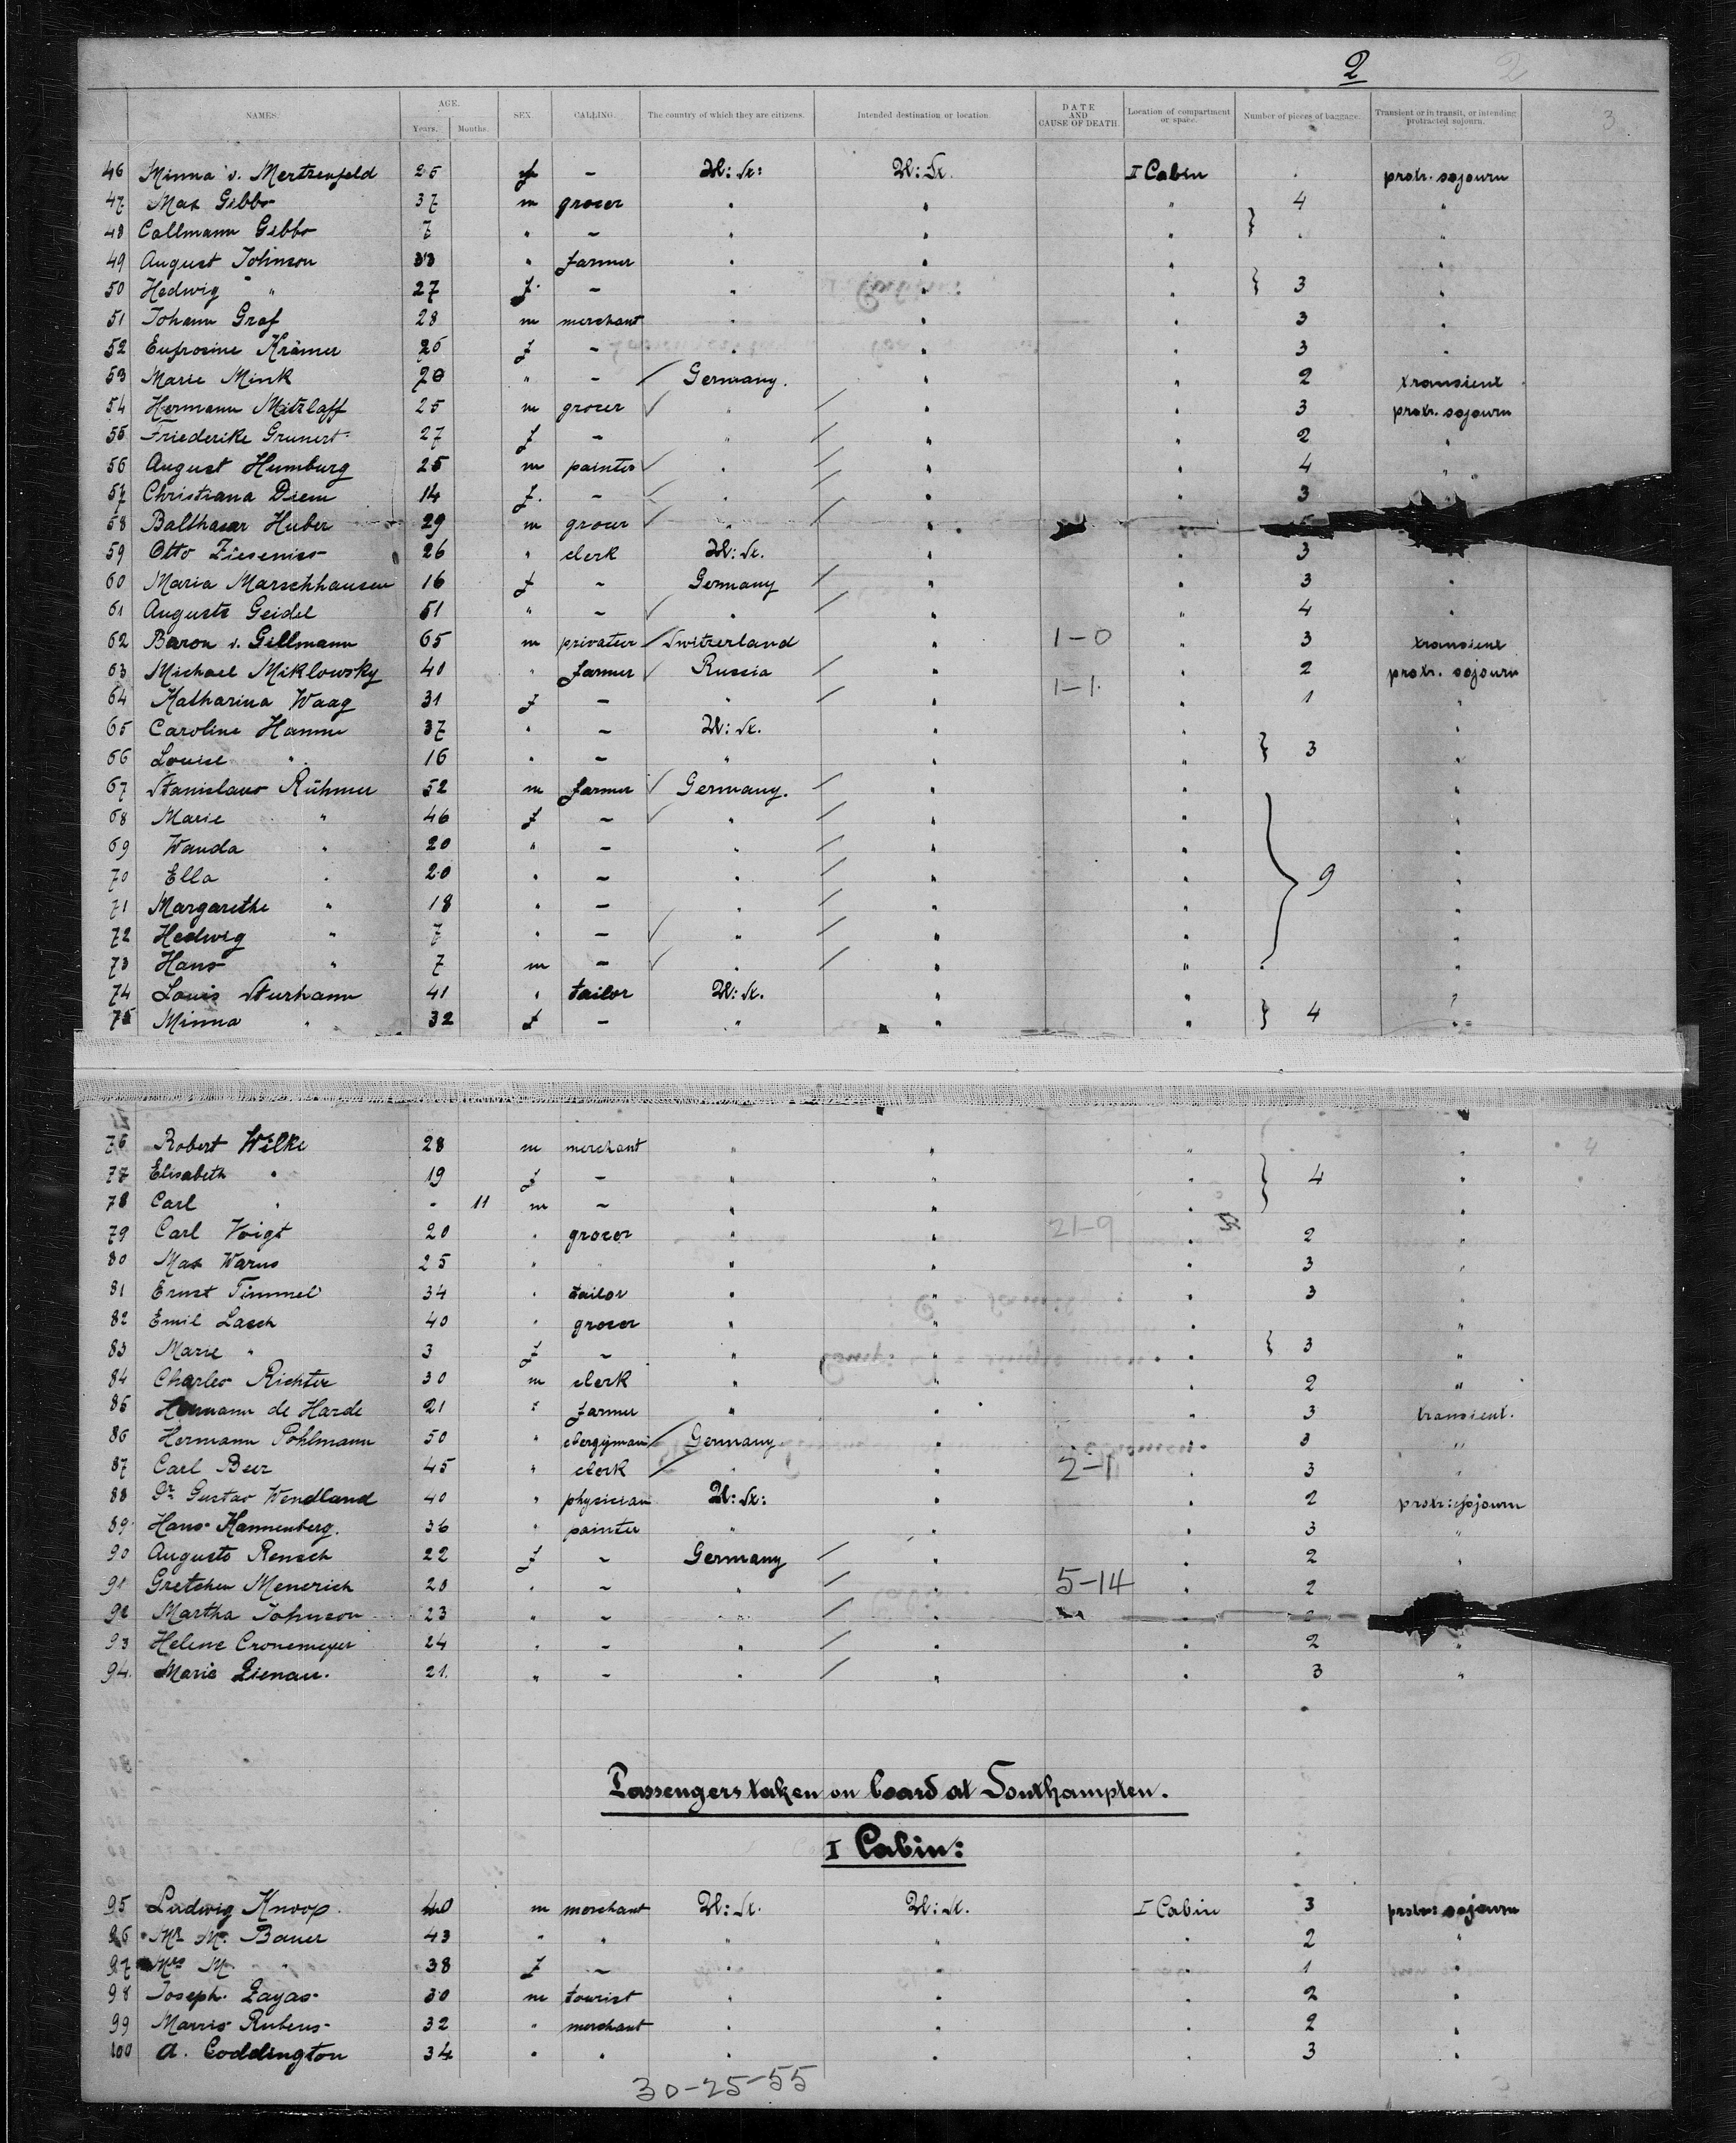 2
3
NAMES. AGE. Years. Months. SEX. CALLING. The country of which they are citizens. Intended destination or location. DATE AND CAUSE OF DEATH. Location of compartment or space. Number of pieces of baggage. Transient or in transit, or intending protracted sojourn.
46 Minna v. Mertzenfeld 26 f - U: St: U: St. I Cabin . protr. sojourn
47 Max Gibbo 37 m grocer " " " 4 "
48 Callmann Gibbo 7 " - " " " "
49 August Johnson 33 " farmer " " " "
50 Hedwig " 27 f. - " " " 3 "
51 Johann Graf 28 m merchant " " " 3 "
52 Eufrosine Krämer 26 f - " " " 3 "
53 Marie Mink 20 " - Germany. " " 2 transient
54 Hermann Mitzlaff 25 m grocer " " " 3 protr. sojourn
55 Friederike Grunert 27 f - " " " 2 "
56 August Humburg 25 m painter " " " 4 "
57 Christiana Diem 14 f. - " " " 3
58 Balthasar Huber 29 m grocer " " "
59 Otto Zieseniss 26 " clerk U: St. " " 3
60 Maria Marschhausen 16 f - Germany " " 3 "
61 Auguste Geidel 51 " - " " " 4 "
62 Baron v. Gillmann 65 m privatier Switzerland " 1-0 " 3 transient
63 Michael Miklowsky 40 " farmer Russia " " 2 protr. sojourn
64 Katharina Waag 31 f - " " 1-1. " 1 "
65 Caroline Hamme 37 " - U: St. " " "
66 Louise " 16 " - " " " 3 "
67 Stanislaus Rühmer 52 m farmer Germany. " " "
68 Marie " 46 f - " " " "
69 Wanda " 20 " - " " " "
70 Ella " 20 " - " " " 9 "
71 Margarethe " 18 " - " " " "
72 Hedwig " 7 " - " " " "
73 Hans " 7 m - " " " "
74 Louis Sturhann 41 " tailor U: St. " " "
75 Minna " 32 f - " " " 4 "
76 Robert Wilke 28 m merchant " " " "
77 Elisabeth " 19 f - " " " 4 "
78 Carl " - 11 m - " " " "
79 Carl Voigt 20 " grocer " " 21-9 " 2 "
80 Max Warns 25 " " " " " 3 "
81 Ernst Timmel 34 " tailor " " " 3 "
82 Emil Lasch 40 " grocer " " " "
83 Marie " 3 f - " " " 3 "
84 Charles Richter 30 m clerk " " " 2 "
85 Hermann de Harde 21 " farmer " " " 3 transient.
86 Hermann Pohlmann 50 " clergyman Germany " " 3 "
87 Carl Beer 45 " clerk " " 2-1 " 3 "
88 Dr. Gustav Wendland 40 " physician U: St: " " 2 protr: sojourn
89 Hans Kannenberg. 36 " painter " " " 3 "
90 Auguste Rensch 22 f - Germany " " 2 "
91 Gretchen Menerich 20 " - " " 5-14 " 2
92 Martha Johnson 23 " - " " "
93 Helene Cronemeyer 24 " - " " " 2 "
94. Marie Lienau. 21. " - " " " 3 "
Passengers taken on board at Southampton.
I Cabin:
95 Ludwig Knoop. 40 m merchant U: St. U: St. I Cabin 3 protr: sojourn
96 Mr. M. Bauer 43 " " " " " 2 "
97 Mrs M. " 38 f - " " " 1 "
98 Joseph Zayas 30 m tourist " " " 2 "
99 Marris Rubens 32 " merchant " " " 2 "
100 A. Coddington 34 " " " " " 3 "
30-25-55